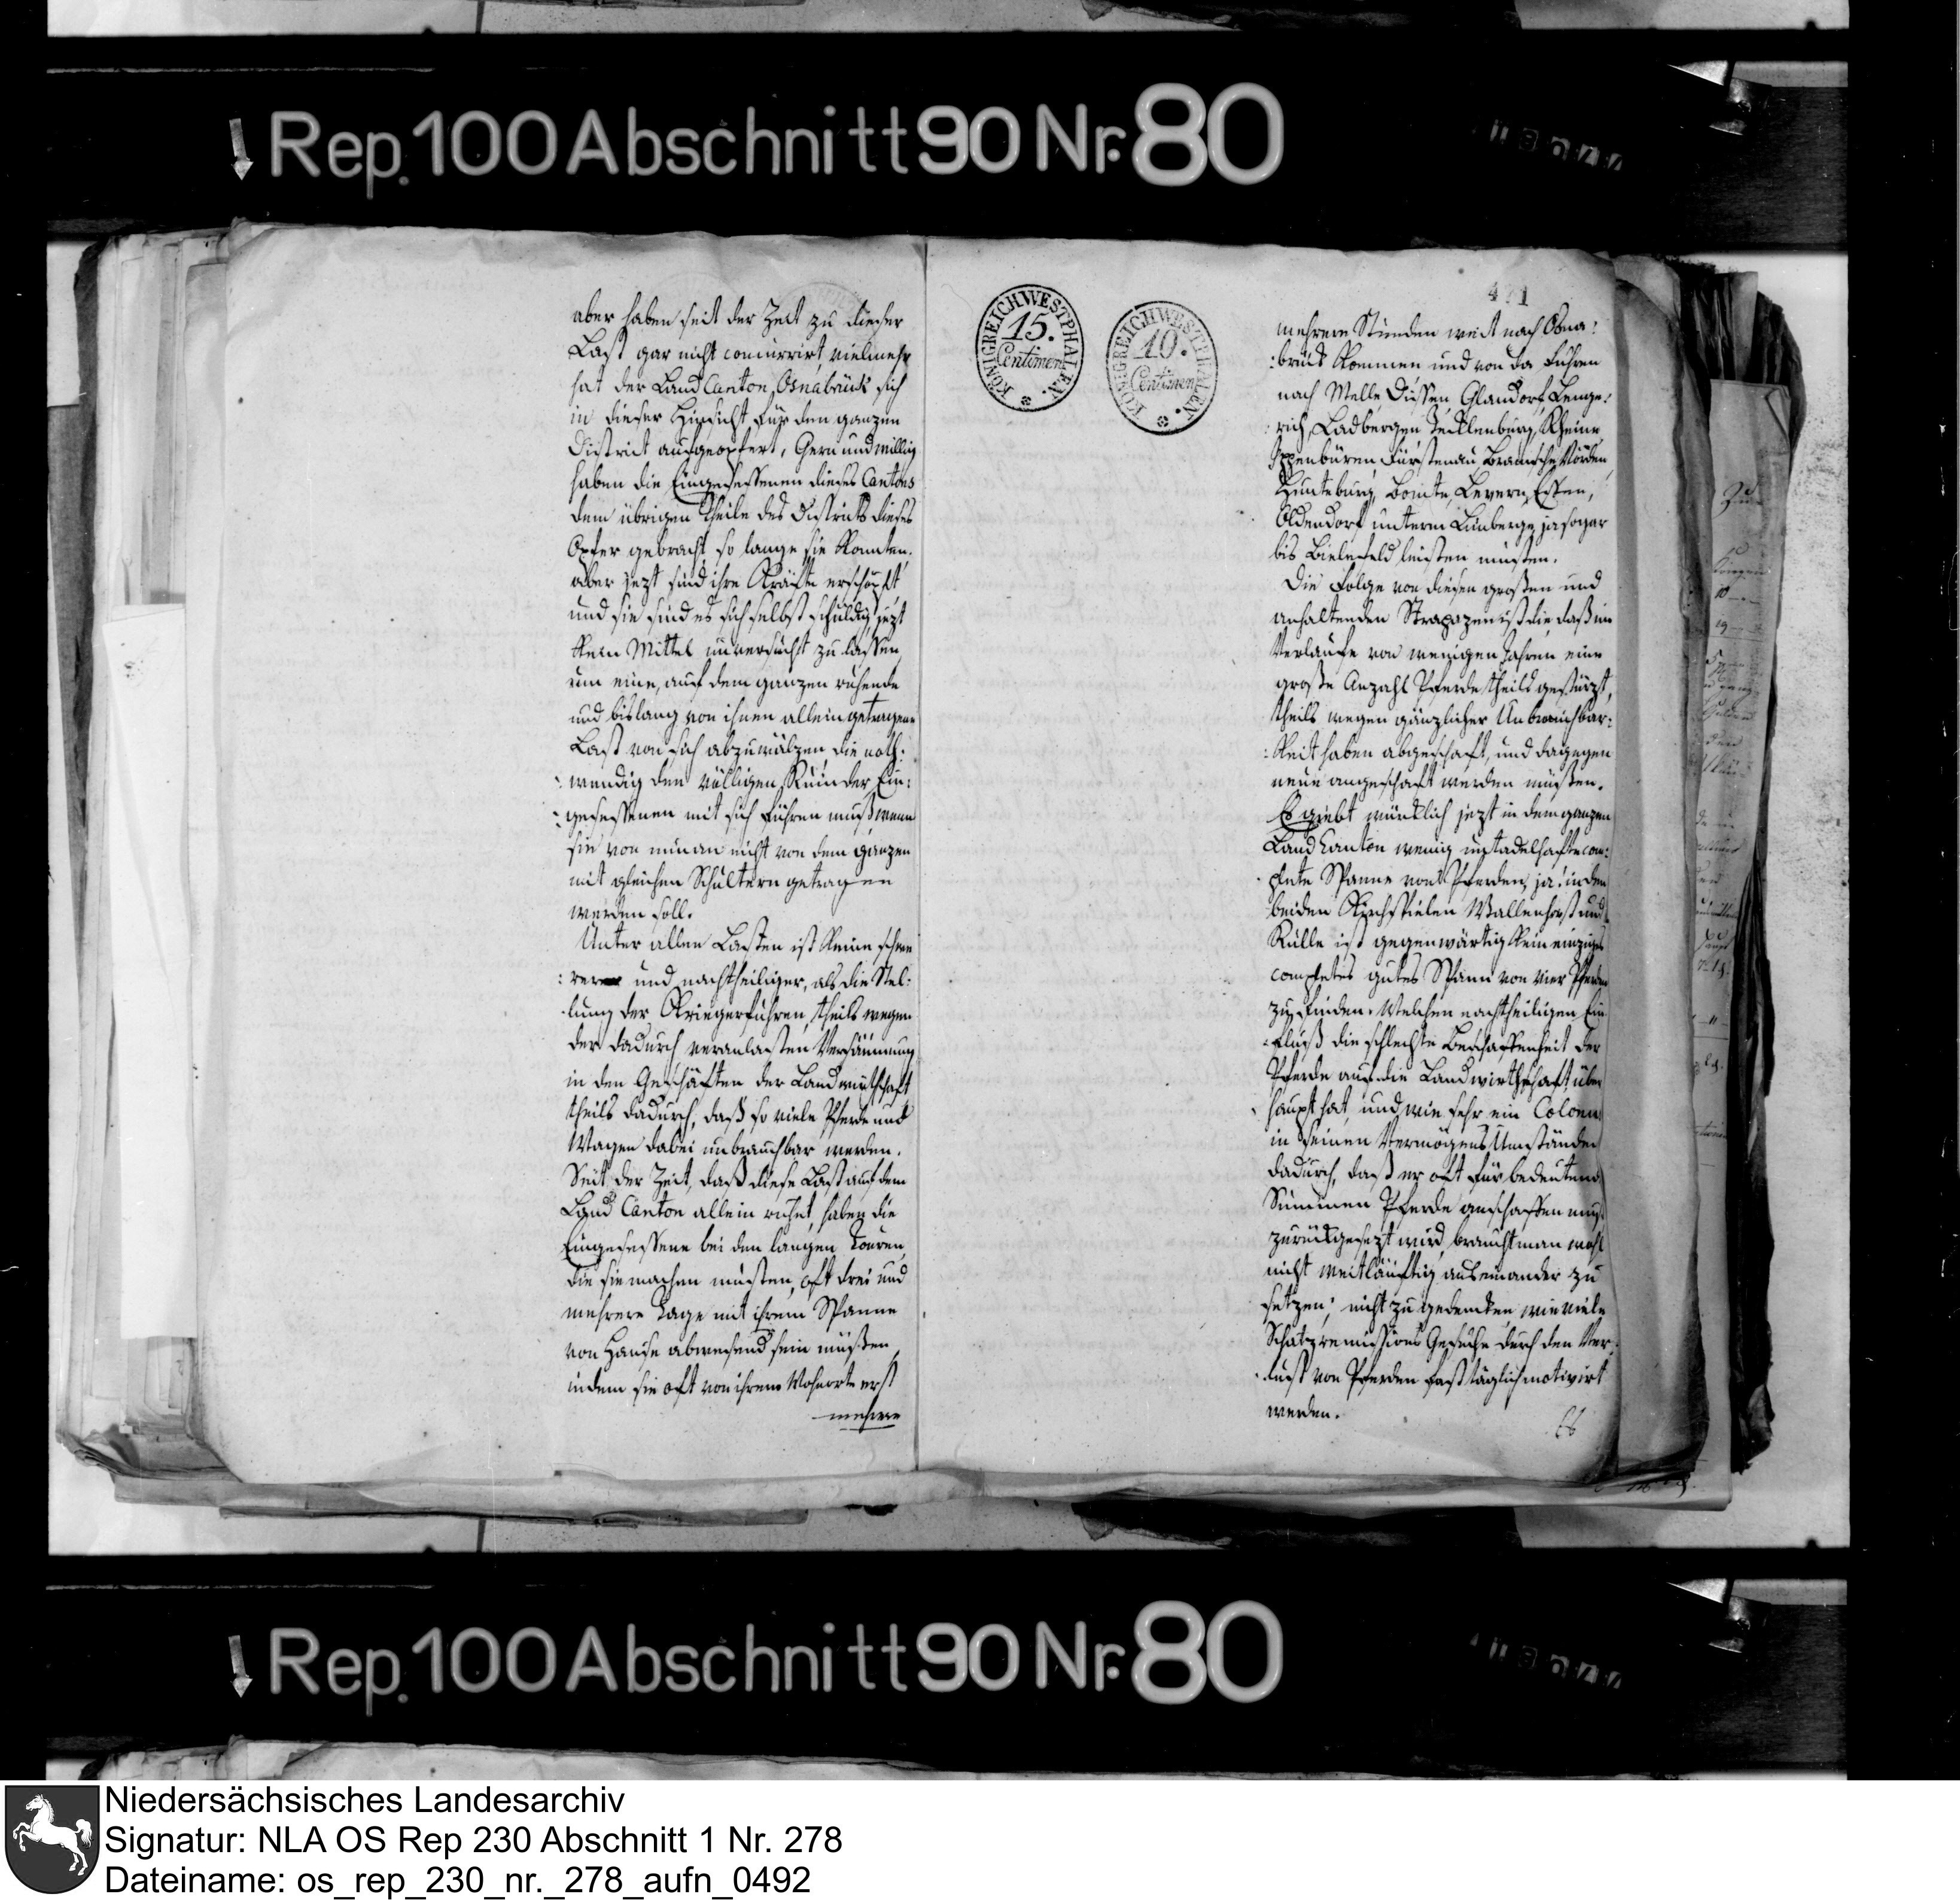 Rep. 100 Abschnitt 90 Nr. 80
aber haben seit der Zeit zu dieser
Last gar nicht concurrirt, vielmehr
hat der Land Canton Osnabrück sich
in dieser Hinsicht für den ganzen
District aufgeopfert. Gern und willig
haben die Eingesessenen dieses Cantons
dem übrigen Theile des Districts dieses
Opfer gebracht, so lange sie konnten,
aber jezt sind ihre Kräfte erschöpft,
und sie sind es sich selbst schuldig, jezt
kein Mittel unversucht zu lassen,
um eine, auf dem ganzen ruhende
und bislang von ihnen allein getragene
Last von sich abzuwälzen, die noth:
:wendig den völligen Ruin der Ein:
:gesessenen mit sich führen muß, wenn
sie von nun an nicht von dem ganzen
mit gleichen Schultern getragen
werden soll.
Unter allen Lasten ist keine schwe
:rer und nachtheiliger, als die Stel:
:lung der Kriegerfuhren, theils wegen
der dadurch veranlasten Versäumung
in den Geschäften der Landwirtschaft
theils dadurch, daß so viele Pferde und
Wagen dabei unbrauchbar werden.
Seit der Zeit, daß diese Last auf dem
Land Canton allein ruhet, haben die
Eingesessene bei den langen Touren,
die sie machen müsten, oft drei und
mehrere Tage mit ihrem Spanne
von Hause abwesend sein müßen,
indem sie oft von ihrem Wohnorte erst
mehrere
KÖNIGREICH WESTPHALEN.
15.
Centimen
KÖNIGREICH WESTPHALEN.
10.
Centimen
471
mehrere Stunden weit nach Osna:
:brück kommen und von da Fuhren
nach Melle, Dissen, Glandorf, Lenge:
:rich, Ladbergen, Tecklenburg, Rheine
Ippenbüren, Fürstenau, Bramsche, Vörden,
Hunteburg, Bomte, Levern, Essen,
Oldendorf unterm Limberge, ja sogar
bis Bielefeld leisten musten.
Die Folge von diesen großen und
anhaltenden Strapazen ist die, daß im
Verlaufe von wenigen Jahren eine
große Anzahl Pferde theils gestürzt,
theils wegen gänzlicher Unbrauchbar:
:keit haben abgeschaft, und dagegen
neue angeschaft werden müßen.
Es giebt würklich jezt in dem ganzen
Land Canton wenig untadelhafte com:
plete Spanne von Pferden, ja! in den
beiden Kirchspielen Wallenhorst und
Rulle ist gegenwärtig kein einziges
completes gutes Spann von vier Pferden
zu finden. Welchen nachtheiligen Ein
:fluß die schlechte Beschaffenheit der
Pferde auf die Landwirthschaft über
haupt hat, und wie sehr ein Colonus
in seinen Vermögens Umständen
dadurch, daß er oft für bedeutende
Summen Pferde anschaffen muß,
zurückgesezt wird, braucht man wohl
nicht weitläuftig auseinander zu
setzen; nicht zu gedenken, wie viele
Schatzremissions Gesuche durch den Ver:
:lust von Pferden fast täglich motivirt
werden.
Rep. 100 Abschnitt 90 Nr. 80
Niedersächsisches Landesarchiv
Signatur: NLA OS Rep 230 Abschnitt 1 Nr. 278
Dateiname: os_rep_230_nr._278_aufn_0492